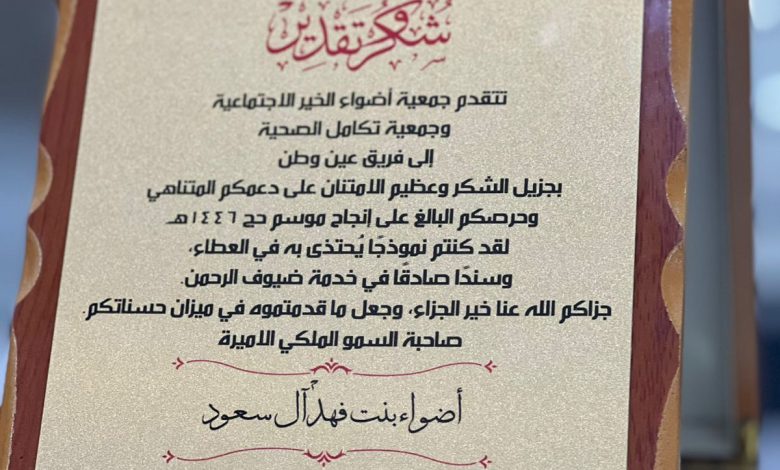 شكر وتقدير
تتقدم جمعية أضواء الخير الاجتماعية
وجمعية تكامل الصحية
إلى فريق عين وطن
بجزيل الشكر وعظيم الامتنان على دعمكم المتناهي
وحرصكم البالغ على إنجاح موسم حج ١٤٤٦هـ
لقد كنتم نموذجًا يُحتذى به في العطاء،
وسندًا صادقًا في خدمة ضيوف الرحمن.
جزاكم الله عنا خير الجزاء، وجعل ما قدمتموه في ميزان حسناتكم.
صاحبة السمو الملكي الاميرة
أضواء بنت فهد آل سعود